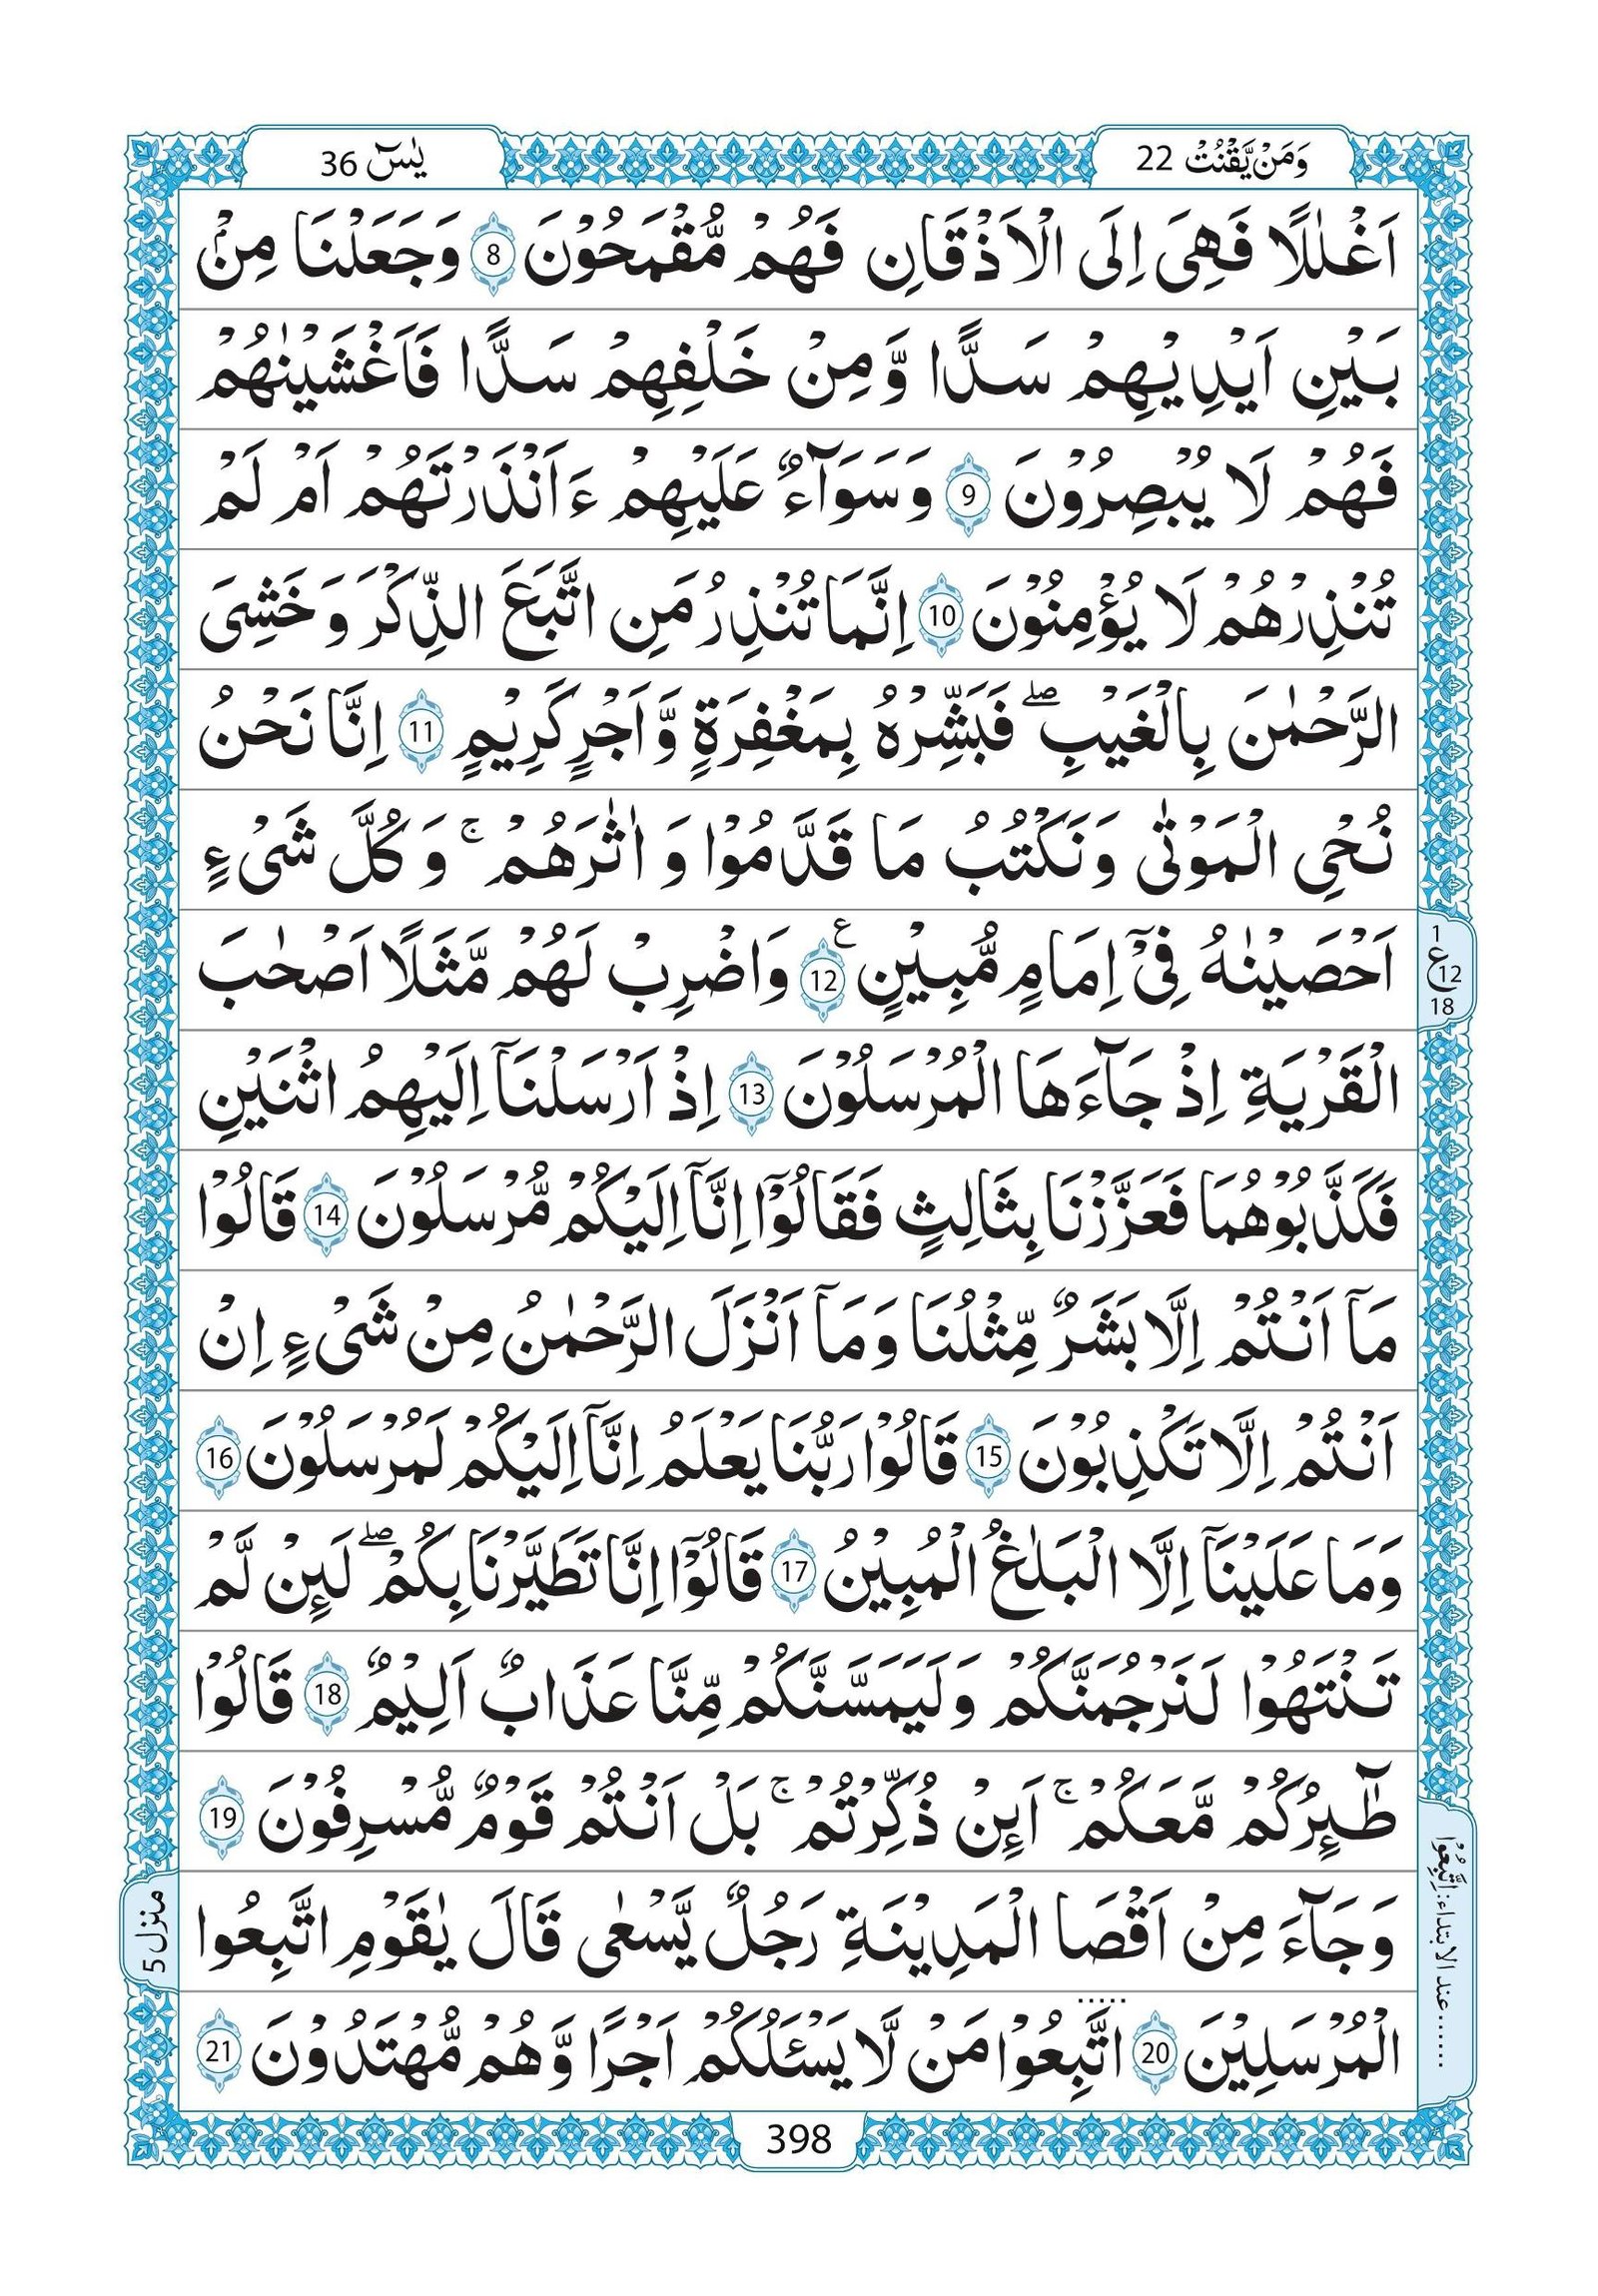 وَمَنْ يَّقْنُتْ 22
يٰسٓ 36
اَغْلٰلًا فَهِىَ اِلَى الْاَذْقَانِ فَهُمْ مُّقْمَحُوْنَ 8 وَجَعَلْنَا مِنْۢ
بَيْنِ اَيْدِيْهِمْ سَدًّا وَّمِنْ خَلْفِهِمْ سَدًّا فَاَغْشَيْنٰهُمْ
فَهُمْ لَا يُبْصِرُوْنَ 9 وَسَوَآءٌ عَلَيْهِمْ ءَاَنْذَرْتَهُمْ اَمْ لَمْ
تُنْذِرْهُمْ لَا يُؤْمِنُوْنَ 10 اِنَّمَا تُنْذِرُ مَنِ اتَّبَعَ الذِّكْرَ وَخَشِىَ
الرَّحْمٰنَ بِالْغَيْبِ ۖ فَبَشِّرْهُ بِمَغْفِرَةٍ وَّاَجْرٍ كَرِيْمٍ 11 اِنَّا نَحْنُ
نُحْىِ الْمَوْتٰى وَنَكْتُبُ مَا قَدَّمُوْا وَاٰثٰرَهُمْ ۚ وَكُلَّ شَىْءٍ
اَحْصَيْنٰهُ فِىْٓ اِمَامٍ مُّبِيْنٍ ع 12 وَاضْرِبْ لَهُمْ مَّثَلًا اَصْحٰبَ
1 ع 12 18
الْقَرْيَةِ اِذْ جَآءَهَا الْمُرْسَلُوْنَ 13 اِذْ اَرْسَلْنَآ اِلَيْهِمُ اثْنَيْنِ
فَكَذَّبُوْهُمَا فَعَزَّزْنَا بِثَالِثٍ فَقَالُوْٓا اِنَّآ اِلَيْكُمْ مُّرْسَلُوْنَ 14 قَالُوْا
مَآ اَنْتُمْ اِلَّا بَشَرٌ مِّثْلُنَا وَمَآ اَنْزَلَ الرَّحْمٰنُ مِنْ شَىْءٍ اِنْ
اَنْتُمْ اِلَّا تَكْذِبُوْنَ 15 قَالُوْا رَبُّنَا يَعْلَمُ اِنَّآ اِلَيْكُمْ لَمُرْسَلُوْنَ 16
وَمَا عَلَيْنَآ اِلَّا الْبَلٰغُ الْمُبِيْنُ 17 قَالُوْٓا اِنَّا تَطَيَّرْنَا بِكُمْ ۖ لَئِنْ لَّمْ
تَنْتَهُوْا لَنَرْجُمَنَّكُمْ وَلَيَمَسَّنَّكُمْ مِّنَّا عَذَابٌ اَلِيْمٌ 18 قَالُوْا
طٰٓئِرُكُمْ مَّعَكُمْ ۚ اَئِنْ ذُكِّرْتُمْ ۚ بَلْ اَنْتُمْ قَوْمٌ مُّسْرِفُوْنَ 19
وَجَآءَ مِنْ اَقْصَا الْمَدِيْنَةِ رَجُلٌ يَّسْعٰى قَالَ يٰقَوْمِ اتَّبِعُوا
الْمُرْسَلِيْنَ 20 اتَّبِعُوْا مَنْ لَّا يَسْـَٔلُكُمْ اَجْرًا وَّهُمْ مُّهْتَدُوْنَ 21
......عند الابتداء: اِتَّبِعُوْا
منزل 5
398